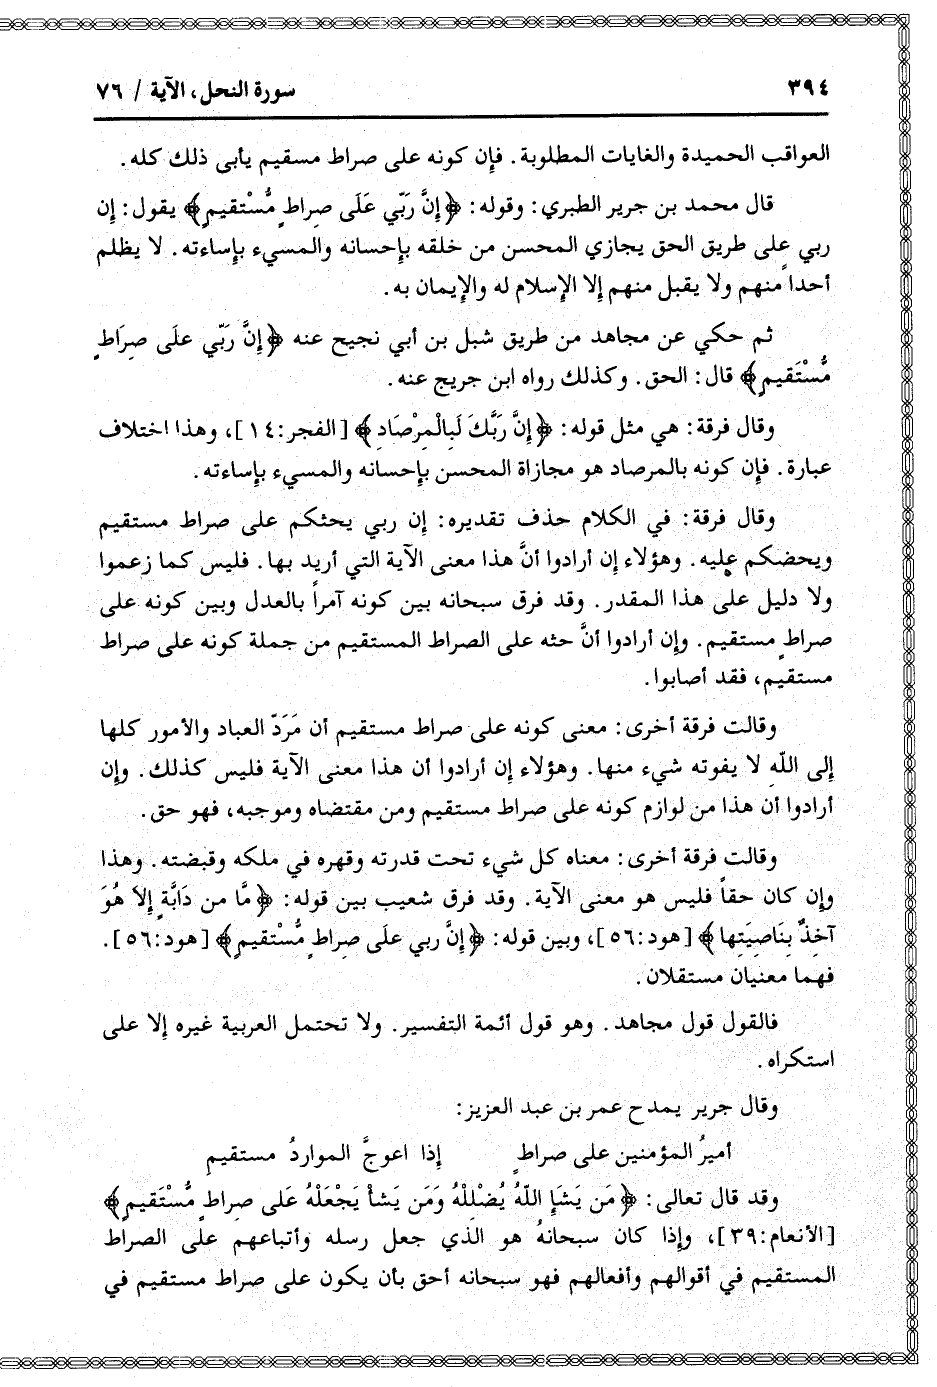 ٣٩٤
سورة النحل، الآية / ٧٦
العواقب الحميدة والغايات المطلوبة. فإن كونه على صراط مسقيم يأبى ذلك كله.
قال محمد بن جرير الطبري: وقوله: ﴿إنَّ رَبّي عَلَى صِراطٍ مُّسْتقيمٍ﴾ يقول: إن
ربي على طريق الحق يجازي المحسن من خلقه بإحسانه والمسيء بإساءته. لا يظلم
أحداً منهم ولا يقبل منهم إلا الإسلام له والإيمان به.
ثم حكي عن مجاهد من طريق شبل بن أبي نجيح عنه ﴿إنَّ رَبّي علَى صِرَاطٍ
مُّسْتَقيمٍ﴾ قال: الحق. وكذلك رواه ابن جريج عنه.
وقال فرقة: هي مثل قوله: ﴿إنَّ رَبَّكَ لَبِالْمِرْصَادِ﴾ [الفجر:١٤]، وهذا اختلاف
عبارة. فإن كونه بالمرصاد هو مجازاة المحسن بإحسانه والمسيء بإساءته.
وقال فرقة: في الكلام حذف تقديره: إن ربي يحثكم على صراط مستقيم
ويحضكم عليه. وهؤلاء إن أرادوا أنَّ هذا معنى الآية التي أريد بها. فليس كما زعموا
ولا دليل على هذا المقدر. وقد فرق سبحانه بين كونه آمراً بالعدل وبين كونه على
صراطٍ مستقيم. وإن أرادوا أنَّ حثه على الصراط المستقيم من جملة كونه على صراط
مستقيم، فقد أصابوا.
وقالت فرقة أخرى: معنى كونه على صراط مستقيم أن مَرَدّ العباد والأمور كلها
إلى اللّهِ لا يفوته شيء منها. وهؤلاء إن أرادوا أن هذا معنى الآية فليس كذلك. وإن
أرادوا أن هذا من لوازم كونه على صراط مستقيم ومن مقتضاه وموجبه، فهو حق.
وقالت فرقة أخرى: معناه كل شيء تحت قدرته وقهره في ملكه وقبضته. وهذا
وإن كان حقاً فليس هو معنى الآية. وقد فرق شعيب بين قوله: ﴿مَّا من دَابَّةٍ إلاَ هُوَ
آخذٌ بِنَاصِيَتِها﴾ [هود:٥٦]، وبين قوله: ﴿إنَّ ربي علَى صِراطٍ مُّسْتقيمٍ﴾ [هود:٥٦].
فهما معنيان مستقلان.
فالقول قول مجاهد. وهو قول أئمة التفسير. ولا تحتمل العربية غيره إلا على
استكراه.
وقال جرير يمدح عمر بن عبد العزيز:
أميرُ المؤمنين على صراطٍ إذا اعوجَّ المواردُ مستقيم
وقد قال تعالى: ﴿مَن يَشَإِ اللّهُ يُضْلِلْهُ وَمَن يَشأْ يَجْعَلْهُ عَلى صراطٍ مُّسْتَقيمٍ﴾
[الأنعام:٣٩]، وإذا كان سبحانهُ هو الذي جعل رسله وأتباعهم على الصراط
المستقيم في أقوالهم وأفعالهم فهو سبحانه أحق بأن يكون على صراط مستقيم في